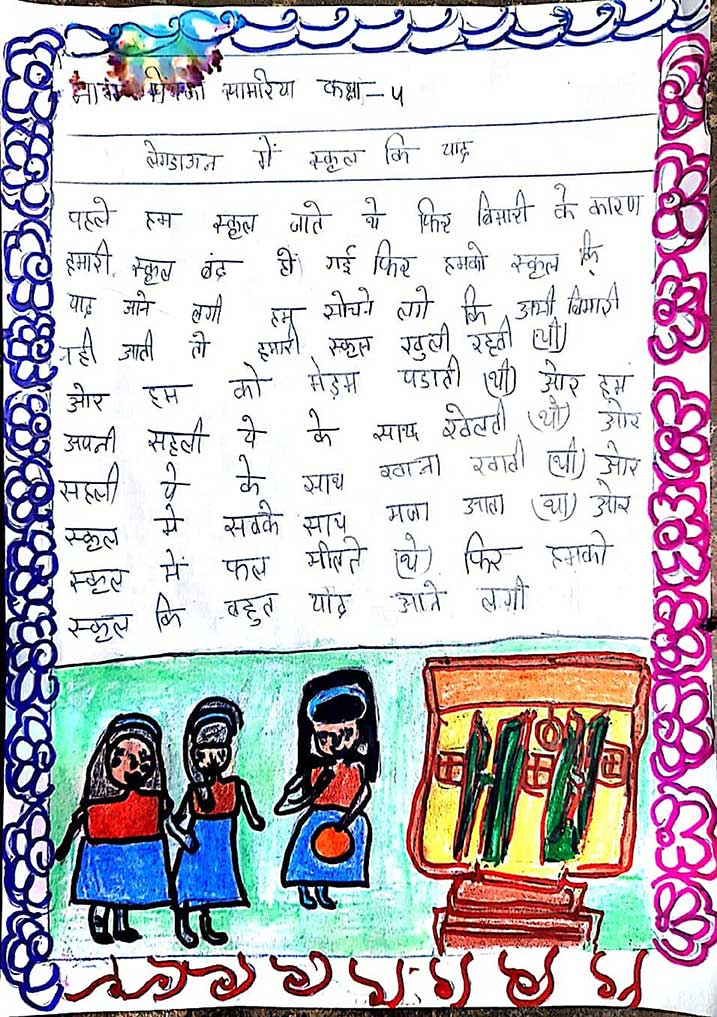 नाम सामरिया कक्षा - ५
लेगडाऊन में स्कूल कि याद
पहले हम स्कूल जाते थे फिर बिमारी के कारण
हमारी स्कूल बंद हो गई फिर हमको स्कूल कि
याद आने लगी हम सोचने लगे कि अभी बिमारी
नही आती तो हमारी स्कूल खुली रहती (थी)
ओर हम को मेड़म पडाती (थी) ओर हम
अपनी सहली ये के साथ खेलती (थी) ओर
सहली ये के साथ खाना खाती (थी) ओर
स्कूल मे सबके साथ मजा आता (था) ओर
स्कूल में फल मीलते (थे) फिर हमको
स्कूल कि बहुत याद आने लगी